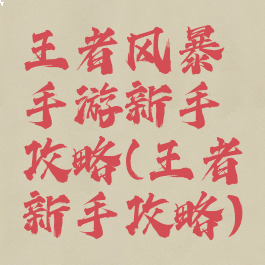 王者风暴
手游新手
攻略(王者
新手攻略)